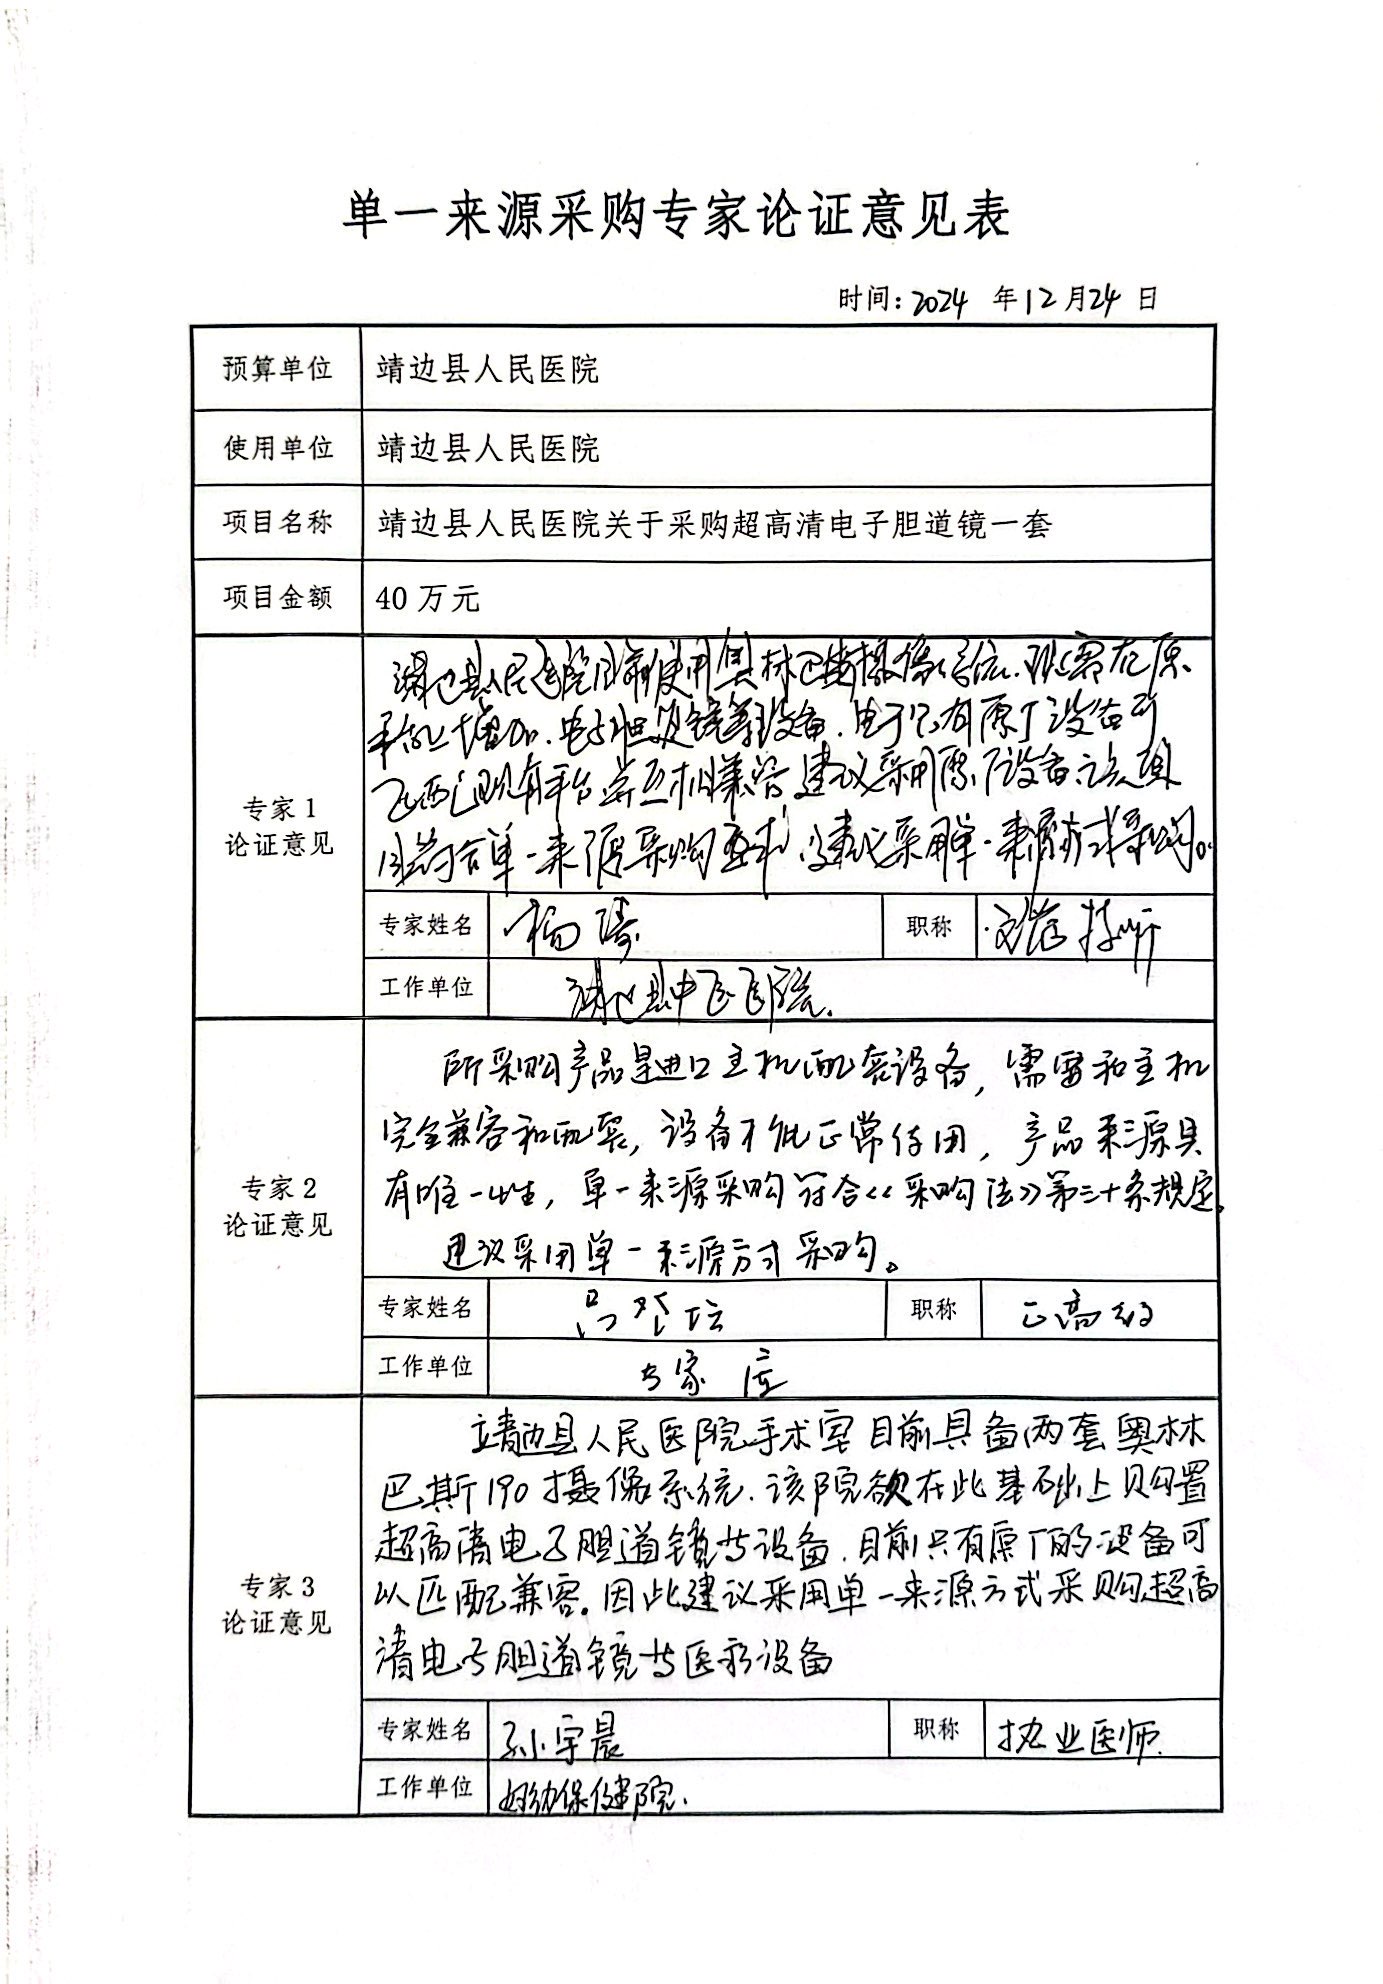 单一来源采购专家论证意见表
时间：2024 年 12 月 24 日
预算单位 靖边县人民医院
使用单位 靖边县人民医院
项目名称 靖边县人民医院关于采购超高清电子胆道镜一套
项目金额 40 万元
专家 1
论证意见
靖边县人民医院目前使用奥林巴斯摄像系统，现需在原
平台上增加电子胆道镜等设备，由于只有原厂设备可
匹配已现有平台并互相兼容 建议采用原厂设备 该项
目符合单一来源采购要求，建议采用单一来源方式采购。
专家姓名 杨 职称
工作单位 靖边县中医医院.
专家 2
论证意见
所采购产品是进口主机配套设备，需要和主机
完全兼容和配套，设备才能正常使用，产品来源具
有唯一性，单一来源采购符合《采购法》第三十条规定，
建议采用单一来源方式采购。
专家姓名 吕 职称 正高级
工作单位 专家库
专家 3
论证意见
靖边县人民医院手术室目前具备两套奥林
巴斯190摄像系统，该院欲在此基础上购置
超高清电子胆道镜等设备，目前只有原厂的设备可
以匹配兼容。因此建议采用单一来源方式采购超高
清电子胆道镜等医疗设备
专家姓名 孙宇晨 职称 执业医师.
工作单位 妇幼保健院.